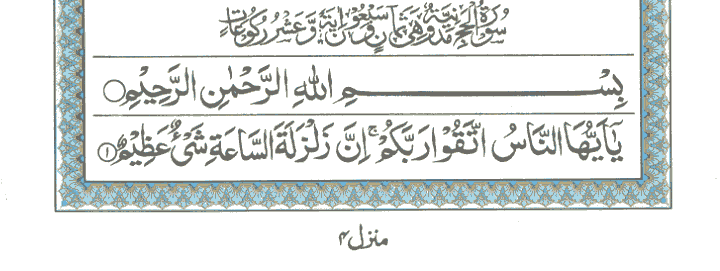 سُوْرَةُ الْحَجِّ مَدَنِيَّةٌ وَّهِيَ ثَمَانٍ وَّسَبْعُوْنَ اٰيَةً وَّعَشْرُ رُكُوْعَاتٍ
بِسْمِ اللّٰهِ الرَّحْمٰنِ الرَّحِيْمِ ○
يٰۤاَيُّهَا النَّاسُ اتَّقُوْا رَبَّكُمْ ۚ اِنَّ زَلْزَلَةَ السَّاعَةِ شَيْءٌ عَظِيْمٌ ۱
منزل ۴